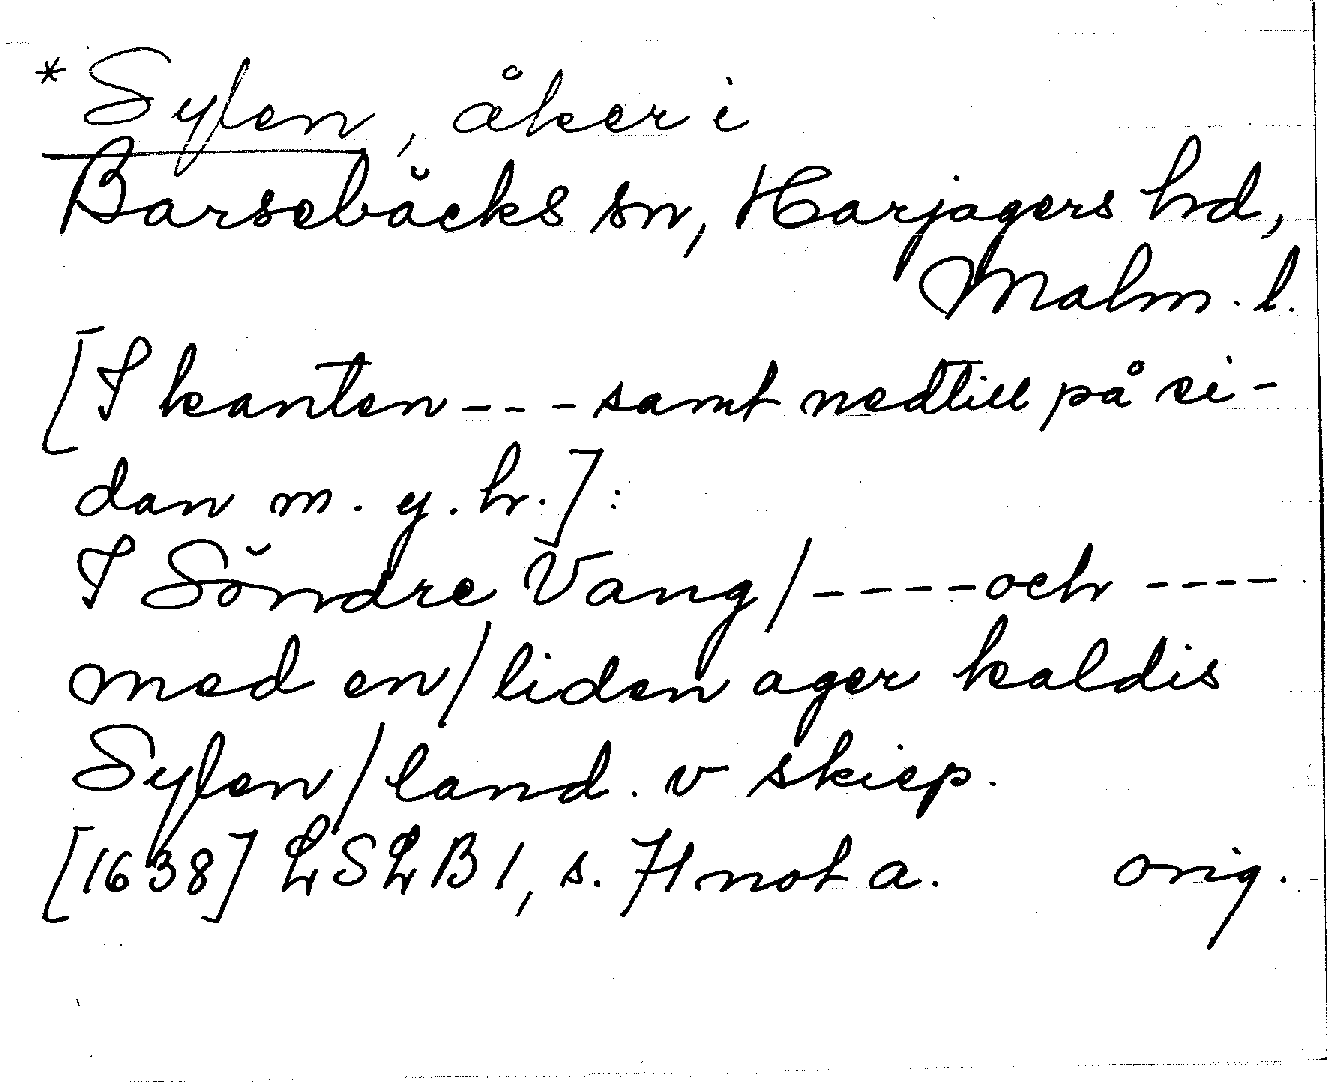 *Sylen, åker i
Barsebäcks sn, Harjagers hd,
Malm. l.
[I kanten --- samt nedtill på si-
dan m. y. hr.]:
I Söndre Vang/ ---- och ----
med en/ liden ager kaldis
Sylen/ land. v skiep.
[1638] LSLB 1, s. 71 not a. orig.